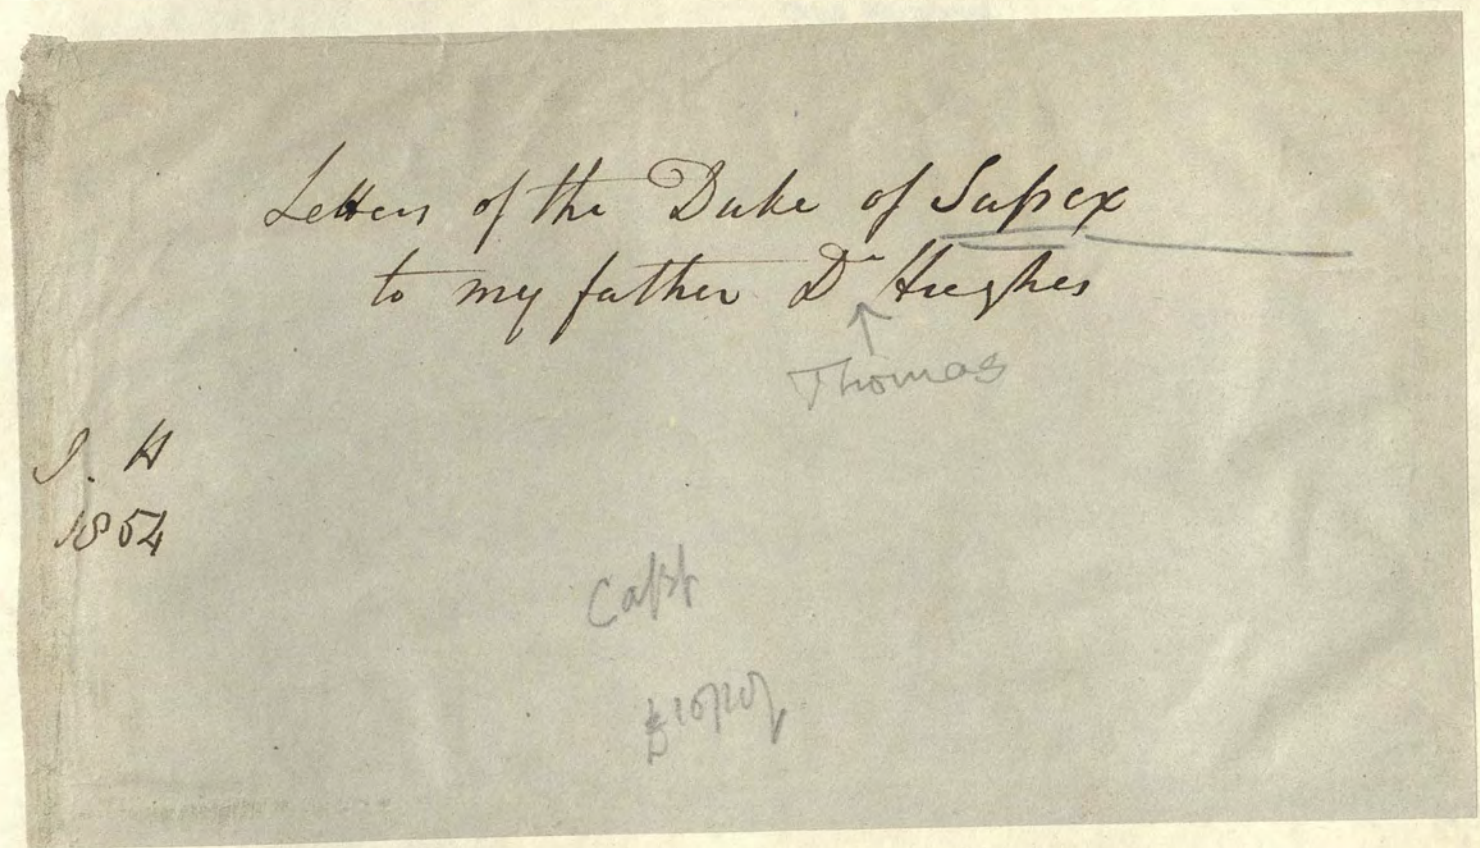 Letters of the Duke of Sussex
to my father Dr Hughes
↑
Thomas
J. H
1854